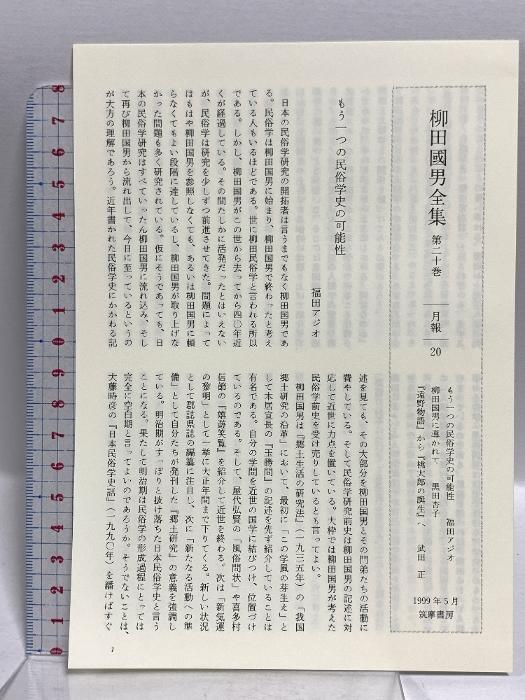 柳田國男全集 第二十巻
月報 20
もう一つの民俗学史の可能性 福田アジオ
柳田国男に導かれて 黒田杏子
『遠野物語』から『桃太郎の誕生』へ 武田 正
1999年5月
筑摩書房
もう一つの民俗学史の可能性
福田アジオ
日本の民俗学研究の開拓者は言うまでもなく柳田国男であ
る。民俗学は柳田国男に始まり、柳田国男で終わったと考え
ている人もいるほどである。世に柳田民俗学と言われる所以
である。しかし、柳田国男がこの世から去ってから四〇年近
くが経過している。その間たしかに活発だったとはいえない
が、民俗学は研究を少しずつ前進させてきた。問題によって
はもはや柳田国男を参照しなくても、あるいは柳田国男に頼
らなくてもよい段階に達しているし、柳田国男が取り上げな
かった問題も多く研究されている。仮にそうであっても、日
本の民俗学研究はすべていったん柳田国男に流れ込み、そし
て再び柳田国男から流れ出して、今日に至っているというの
が大方の理解であろう。近年書かれた民俗学史にかかわる記
述を見ても、その大部分を柳田国男とその門弟たちの活動に
費やしている。そして民俗学研究前史は柳田国男の記述に対
応して近世に力点を置いている。大枠では柳田国男が考えた
民俗学前史を受け売りしているとも言ってよい。
柳田国男は『郷土生活の研究法』（一九三五年）の「我国
郷土研究の沿革」において、最初に「この学風の芽生え」と
して本居宣長の『玉勝間』の記述を先ず紹介していることは
有名である。自分の学問を近世の国学に結びつけ、位置づけ
ているのである。そして、屋代弘賢の「風俗問状」や喜多村
信節の『嬉遊笑覧』を紹介して近世を終わる。次は「新気運
の黎明」として一挙に大正年間まで下りてくる。新しい状況
として郡誌県誌の編纂に注目し、次に「新たなる活動への準
備」として自分たちが発刊した『郷土研究』の意義を強調し
ている。明治期がすっぽりと抜け落ちた日本民俗学史と言う
ことになる。果たして明治期は民俗学の形成過程にとっては
完全に空白期と言ってよいのであろうか。そうでないことは、
大藤時彦の『日本民俗学史話』（一九九〇年）を繙けばすぐ
1
8
7
6
5
4
3
2
1
0
9
8
7
6
5
4
3
2
1
0